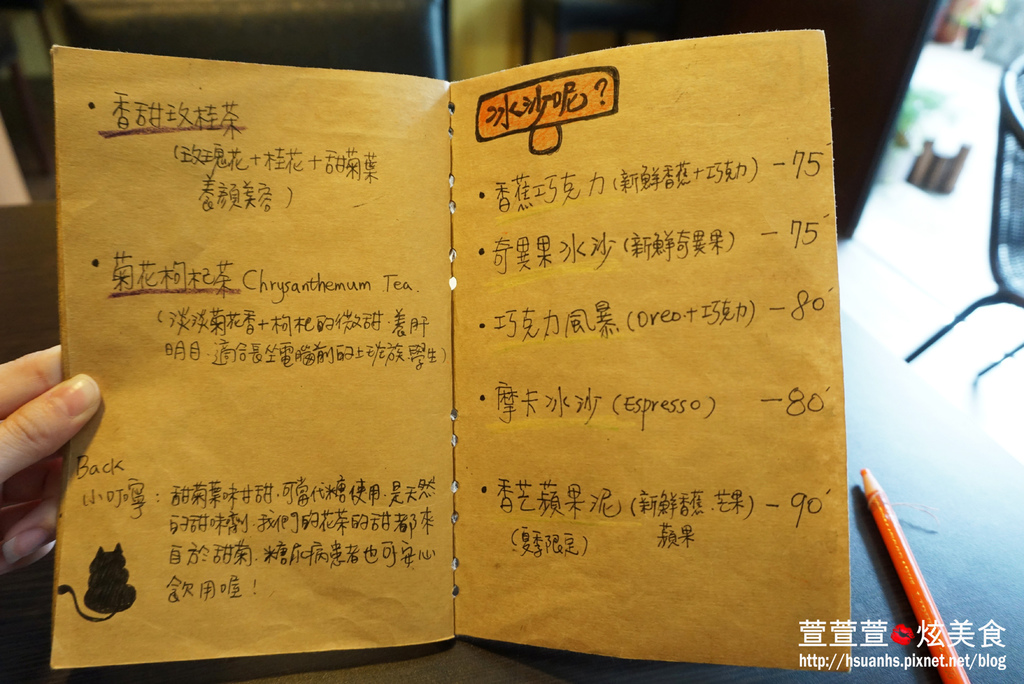 • 香甜玫桂茶
(玫瑰花+桂花+甜菊葉
養顏美容)
• 菊花枸杞茶 Chrysanthemum Tea.
(淡淡菊花香+枸杞的微甜.養肝
明目.適合長坐電腦前的上班族.學生)
Back
小叮嚀: 甜菊葉味甘甜.可當代糖使用.是天然
的甜味劑.我們的花茶的甜都來
自於甜菊.糖尿病患者也可安心
飲用喔!
冰沙呢?
• 香蕉巧克力(新鮮香蕉+巧克力) - 75
• 奇異果冰沙(新鮮奇異果) - 75
• 巧克力風暴(Oreo+巧克力) - 80
• 摩卡冰沙(Espresso) - 80
• 香芒蘋果泥(新鮮香蕉.芒果) - 90
(夏季限定) 蘋果
萱萱萱💋炫美食
http://hsuanhs.pixnet.net/blog